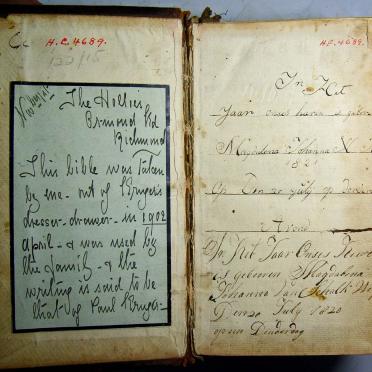 H.C. 4689.
122/15
The Hollies
Ormond Rd
Richmond
This bible was Taken
by me - out of Kruger's
dresser-drawer - in 1902
April - & was used by
the family - & the
writing is said to be
that of Paul Kruger -
H.C. 4689.
In Het
Jaar onses heeren is geboren
Magdalena Johanna
1821
Op Den 20 july op
Avond
In Het Jaar Onses
is geboren Magdalena
Johanna Van
Den 20 July 1820
op een Donderdag